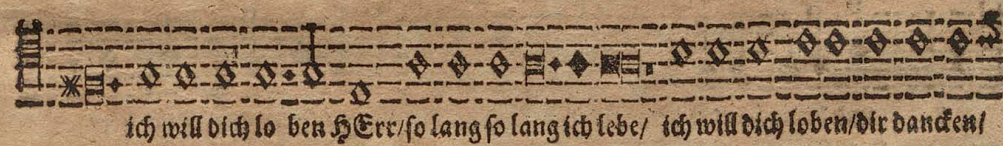 ich will dich lo ben HErr/so lang so lang ich lebe/ ich will dich loben/dir dancken/